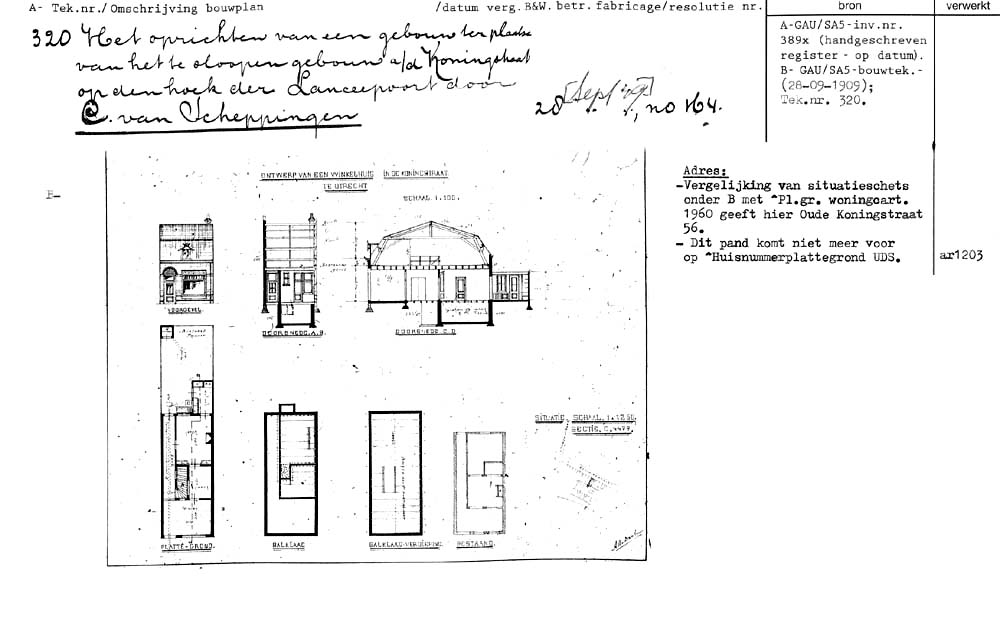 A- Tek.nr./ Omschrijving bouwplan
/datum verg. B&W. betr. fabricage/resolutie nr.
bron
verwerkt
320 Het oprichten van een gebouw ter plaatse
van het te sloopen gebouw a/d Koningstraat
op den hoek der Lauwepoort door
C. van Scheppingen
28 [Sept 1909], no 164.
A-GAU/SA5-inv.nr.
389x (handgeschreven
register - op datum).
B- GAU/SA5-bouwtek.-
(28-09-1909);
Tek.nr. 320.
B-
ONTWERP VAN EEN WINKELHUIS IN DE KONINGSTRAAT
TE UTRECHT
SCHAAL 1:100.
Adres:
-Vergelijking van situatieschets
onder B met ^Pl.gr. woningcart.
1960 geeft hier Oude Koningstraat
56.
- Dit pand komt niet meer voor
op ^Huisnummerplattegrond UDS.
ar1203
VOORGEVEL
DOORSNEDE.A.B.
DOORSNEDE.C.D
SITUATIE. SCHAAL 1:1250.
SECTIE.C.4479.
PLATTE-GROND.
BALKLAAG
BALKLAAG-VERDIEPING.
BESTAAND.